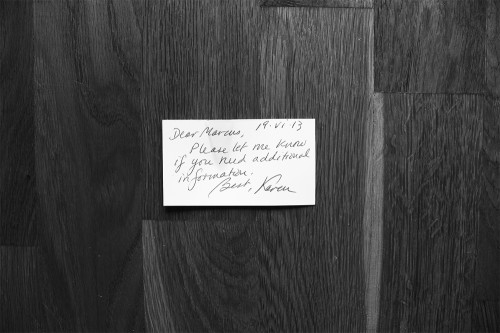 Dear Marcus, 19·VI·13
Please let me know
if you need additional
information.
Best, Karen